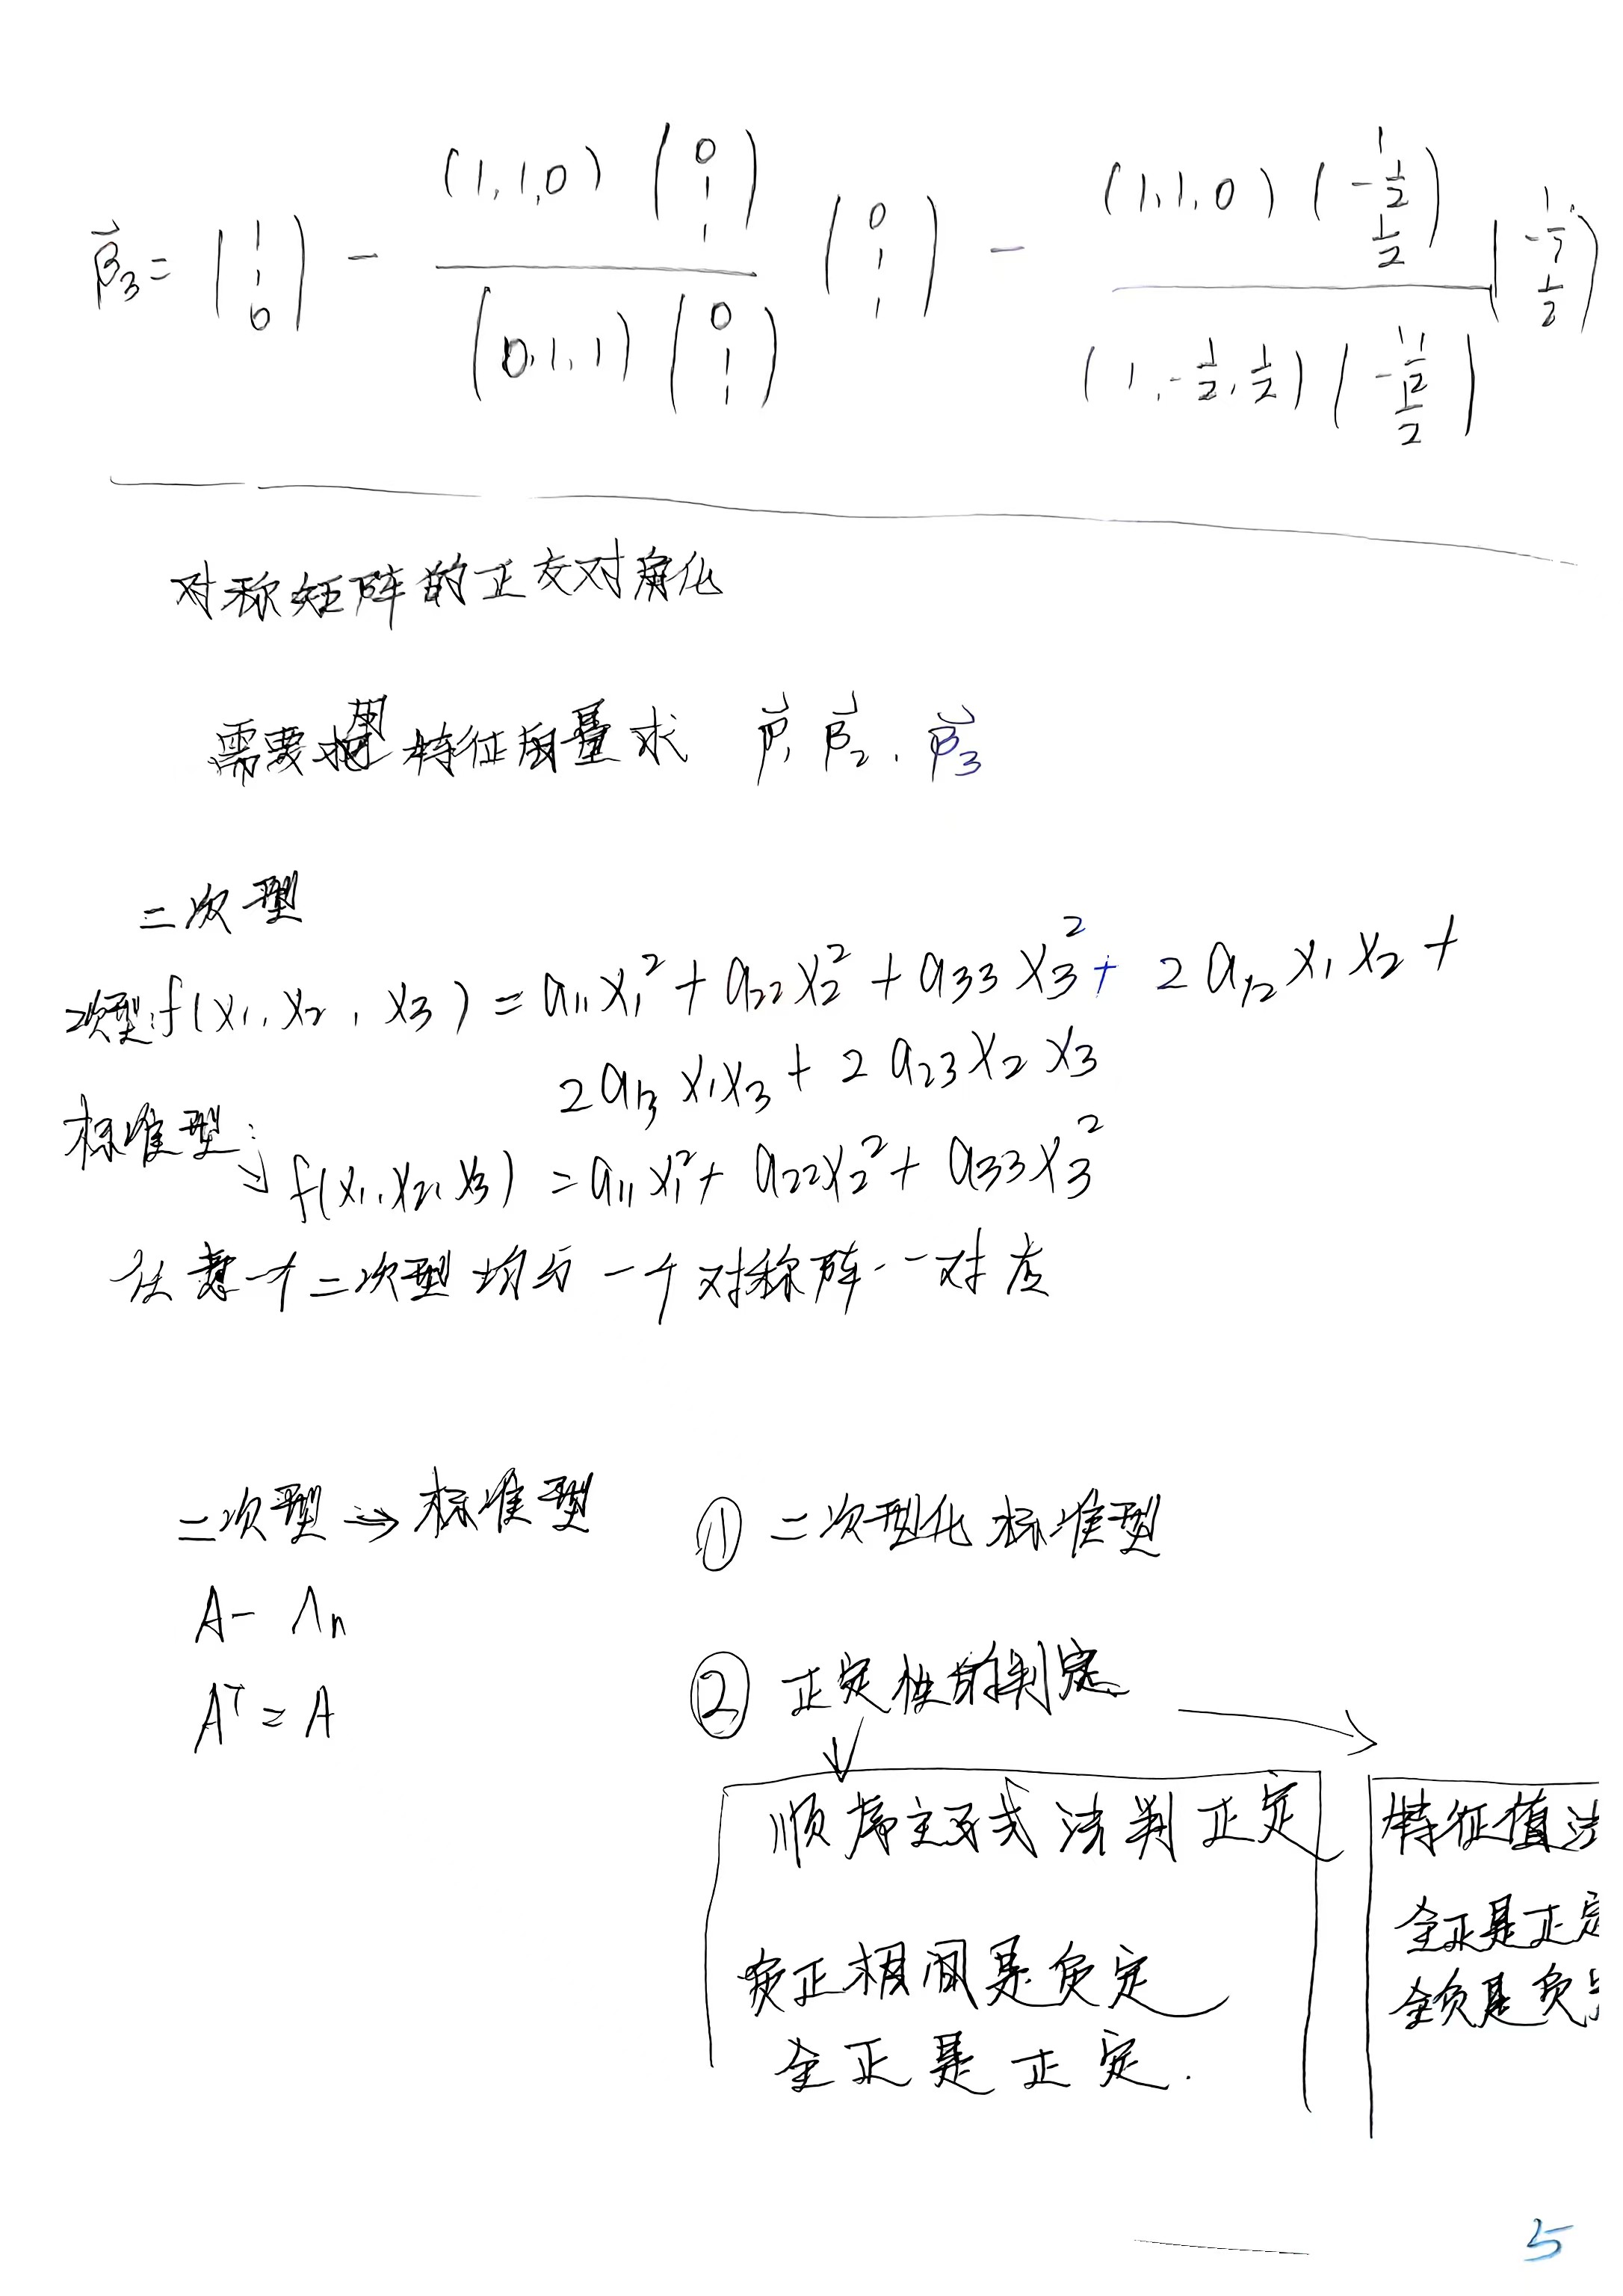 β⃗3 = (1 1 0) − (1,1,0)(0 1 1) / (0,1,1)(0 1 1) (0 1 1) − (1,1,0)(1 -1/2 1/2) / (1,-1/2,1/2)(1 -1/2 1/2) (1 -1/2 1/2)
对称矩阵的正交对角化
需要用特征向量求 β⃗1 β⃗2 . β⃗3
二次型
二次型: f(x1, x2, x3) = a11x1² + a22x2² + a33x3² + 2a12x1x2 +
2a13x1x3 + 2a23x2x3
标准型:
f(x1, x2, x3) = a11x1² + a22x2² + a33x3²
任意一个二次型均与一个对称阵一一对应
二次型 → 标准型
A − Λn
Aᵀ = A
① 二次型化标准型
② 正定性的判定
顺序主子式法判正定
负正相间是负定
全正是正定.
特征值法
全正是正定
全负是负定
5